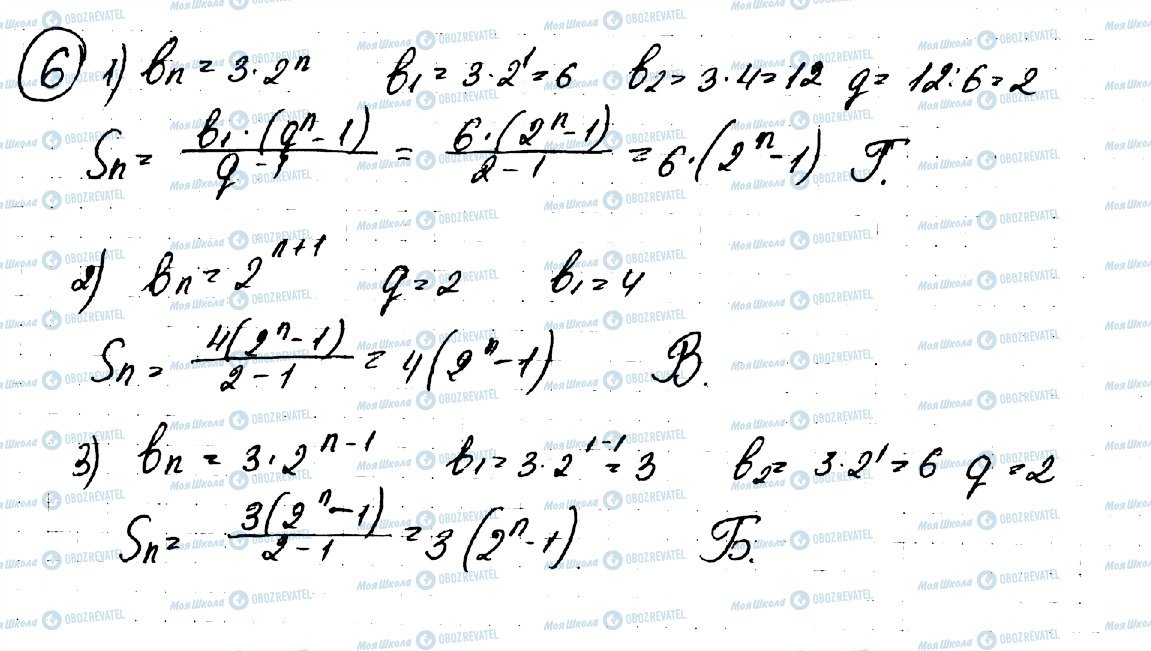 6 1) bn = 3·2^n b1 = 3·2^1 = 6 b2 = 3·4 = 12 q = 12:6 = 2
Sn = b1·(q^n - 1)/(q - 1) = 6·(2^n - 1)/(2 - 1) = 6·(2^n - 1) Г.
2) bn = 2^(n+1) q = 2 b1 = 4
Sn = 4(2^n - 1)/(2 - 1) = 4(2^n - 1) В.
3) bn = 3·2^(n-1) b1 = 3·2^(1-1) = 3 b2 = 3·2^1 = 6 q = 2
Sn = 3(2^n - 1)/(2 - 1) = 3(2^n - 1). Б.
Моя Школа OBOZREVATEL